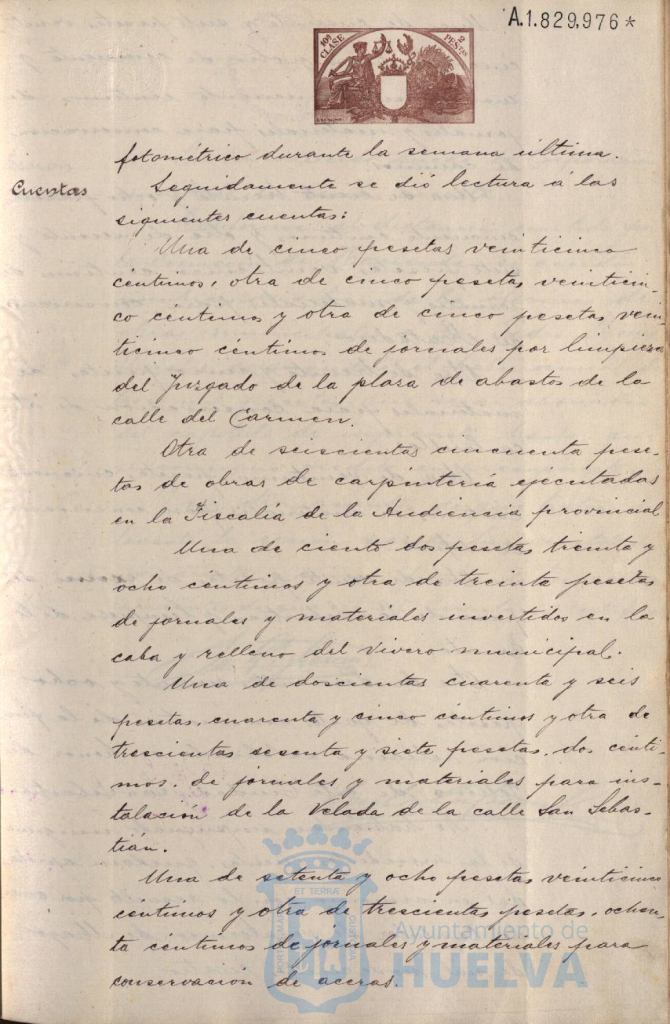 A.1.829,976*
10ª CLASE
2 PESETAS
fotométrico durante la semana última.
Cuentas
Seguidamente se dió lectura á las
siguientes cuentas:
Una de cinco pesetas veinticinco
céntimos, otra de cinco pesetas veinticin-
co céntimos y otra de cinco pesetas vein-
ticinco céntimos de jornales por limpieza
del Juzgado de la plaza de abastos de la
calle del Carmen.
Otra de seiscientas cincuenta pese-
tas de obras de carpintería ejecutadas
en la Fiscalía de la Audiencia provincial
Una de ciento dos pesetas treinta y
ocho céntimos y otra de treinta pesetas
de jornales y materiales invertidos en la
caba y relleno del Vivero municipal.
Una de doscientas cuarenta y seis
pesetas, cuarenta y cinco céntimos y otra de
trescientas sesenta y siete pesetas, dos cénti-
mos, de jornales y materiales para ins-
talación de la Velada de la calle San Sebas-
tián.
Una de setenta y ocho pesetas veinticinco
céntimos y otra de trescientas pesetas, ochen-
ta céntimos de jornales y materiales para
conservación de aceras.
Ayuntamiento de
HUELVA